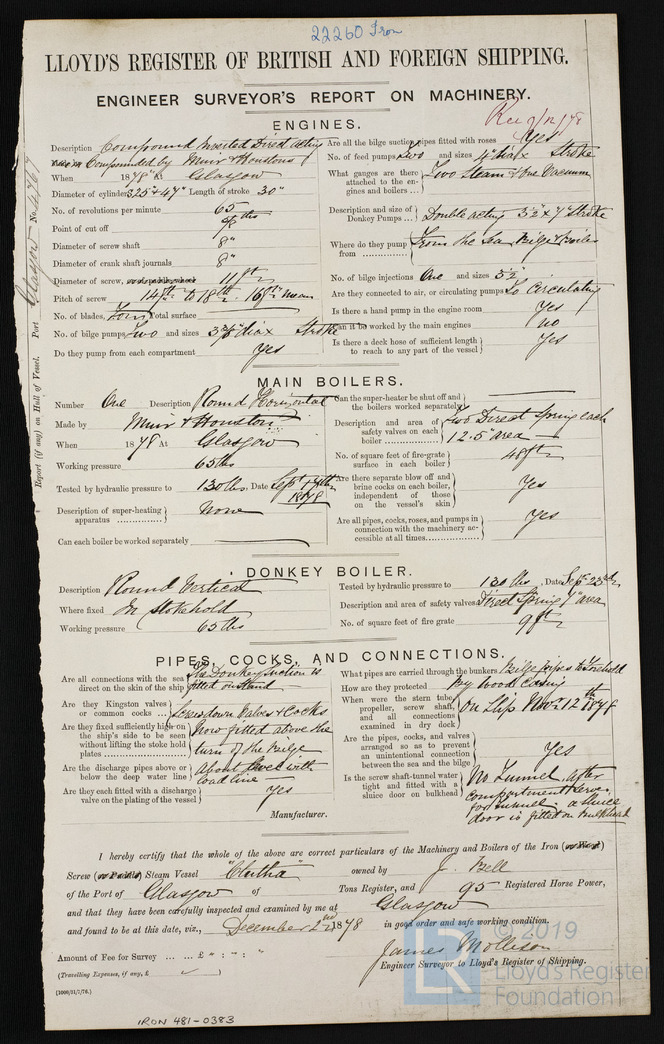 22260 Iron
LLOYD'S REGISTER OF BRITISH AND FOREIGN SHIPPING.
ENGINEER SURVEYOR'S REPORT ON MACHINERY.
Rec 9/12/78
Report (if any) on Hull of Vessel. Port Glasgow No. 4767
ENGINES.
Description Compound Inverted Direct acting
Compounded by Muir & Houstons
When 1878 At Glasgow
Diameter of cylinders 25" & 47" Length of stroke 30"
No. of revolutions per minute 65
Point of cut off
Diameter of screw shaft 8"
Diameter of crank shaft journals 8"
Diameter of screw, or of paddle wheels 11 ft
Pitch of screw 14 ft to 18 ft. 16 ft mean
No. of blades, Four Total surface
No. of bilge pumps, Two and sizes diax Stroke
Do they pump from each compartment Yes
Are all the bilge suction pipes fitted with roses Yes
No. of feed pumps, Two and sizes 4" diax Stroke
What gauges are there attached to the engines and boilers ... Two Steam & One Vacuum
Description and size of Donkey Pumps ... Double acting 3½ x 7" Stroke
Where do they pump from ............ From the Sea Bilge & Boiler
No. of bilge injections One and sizes 5½
Are they connected to air, or circulating pumps To Circulating
Is there a hand pump in the engine room Yes
Can it be worked by the main engines no
Is there a deck hose of sufficient length to reach to any part of the vessel Yes
MAIN BOILERS.
Number One Description Round Horizontal
Made by Muir & Houston
When 1878 At Glasgow
Working pressure 65 lbs
Tested by hydraulic to pressure 130 lbs, Date Sept 17th 1878
Description of super-heating apparatus ............... None
Can each boiler be worked separately
Can the super-heater be shut off and the boilers worked separately
Description and area of safety valves on each boiler ............... Two Direct Spring each 12.5" area
No. of square feet of fire-grate surface in each boiler 48 ft
Are there separate blow off and brine cocks on each boiler, independent of those on the vessel's skin Yes
Are all pipes, cocks, roses, and pumps in connection with the machinery accessible at all times ............ Yes
DONKEY BOILER.
Description Round Vertical
Where fixed In Stokehold
Working pressure 65 lbs
Tested by hydraulic pressure to 130 lbs, Date Sep 23rd
Description and area of safety valves Direct Spring 7" area
No. of square feet of fire grate 9 ft
PIPES, COCKS, AND CONNECTIONS.
Are all connections with the sea direct on the skin of the ship The Donkey Suction is fitted on Stand
Are they Kingston valves or common cocks ... Screwdown Valves & Cocks
Are they fixed sufficiently high on the ship's side to be seen without lifting the stoke hold plates .................. Now fitted above the turn of the Bilge
Are the discharge pipes above or below the deep water line About level with load line
Are they each fitted with a discharge valve on the plating of the vessel Yes
What pipes are carried through the bunkers Bilge pipes to Forehold
How are they protected By wood casing
When were the stern tube propeller, screw shaft, and all connections examined in dry dock On Slip Novr 12th 1878
Are the pipes, cocks, and valves arranged so as to prevent an unintentional connection between the sea and the bilge Yes
Is the screw shaft-tunnel water tight and fitted with a sluice door on bulkhead No Tunnel, after compartment serves for tunnel a sluice door is fitted on bulkhead
Manufacturer.
I hereby certify that the whole of the above are correct particulars of the Machinery and Boilers of the Iron (or Wood)
Screw (or Paddle) Steam Vessel "Clutha" owned by J. Bell
of the Port of Glasgow of Tons Register, and 95 Registered Horse Power,
and that they have been carefully inspected and examined by me at Glasgow
and found to be at this date, viz., December 2nd 1878 in good order and safe working condition.
Amount of Fee for Survey ... ... £ " : " : "
(Travelling Expenses, if any, £
James Mollison
Engineer Surveyor to Lloyd's Register of Shipping.
[1000/31/7/76.]
IRON 481-0383
LR
© 2019
Lloyd's Register
Foundation